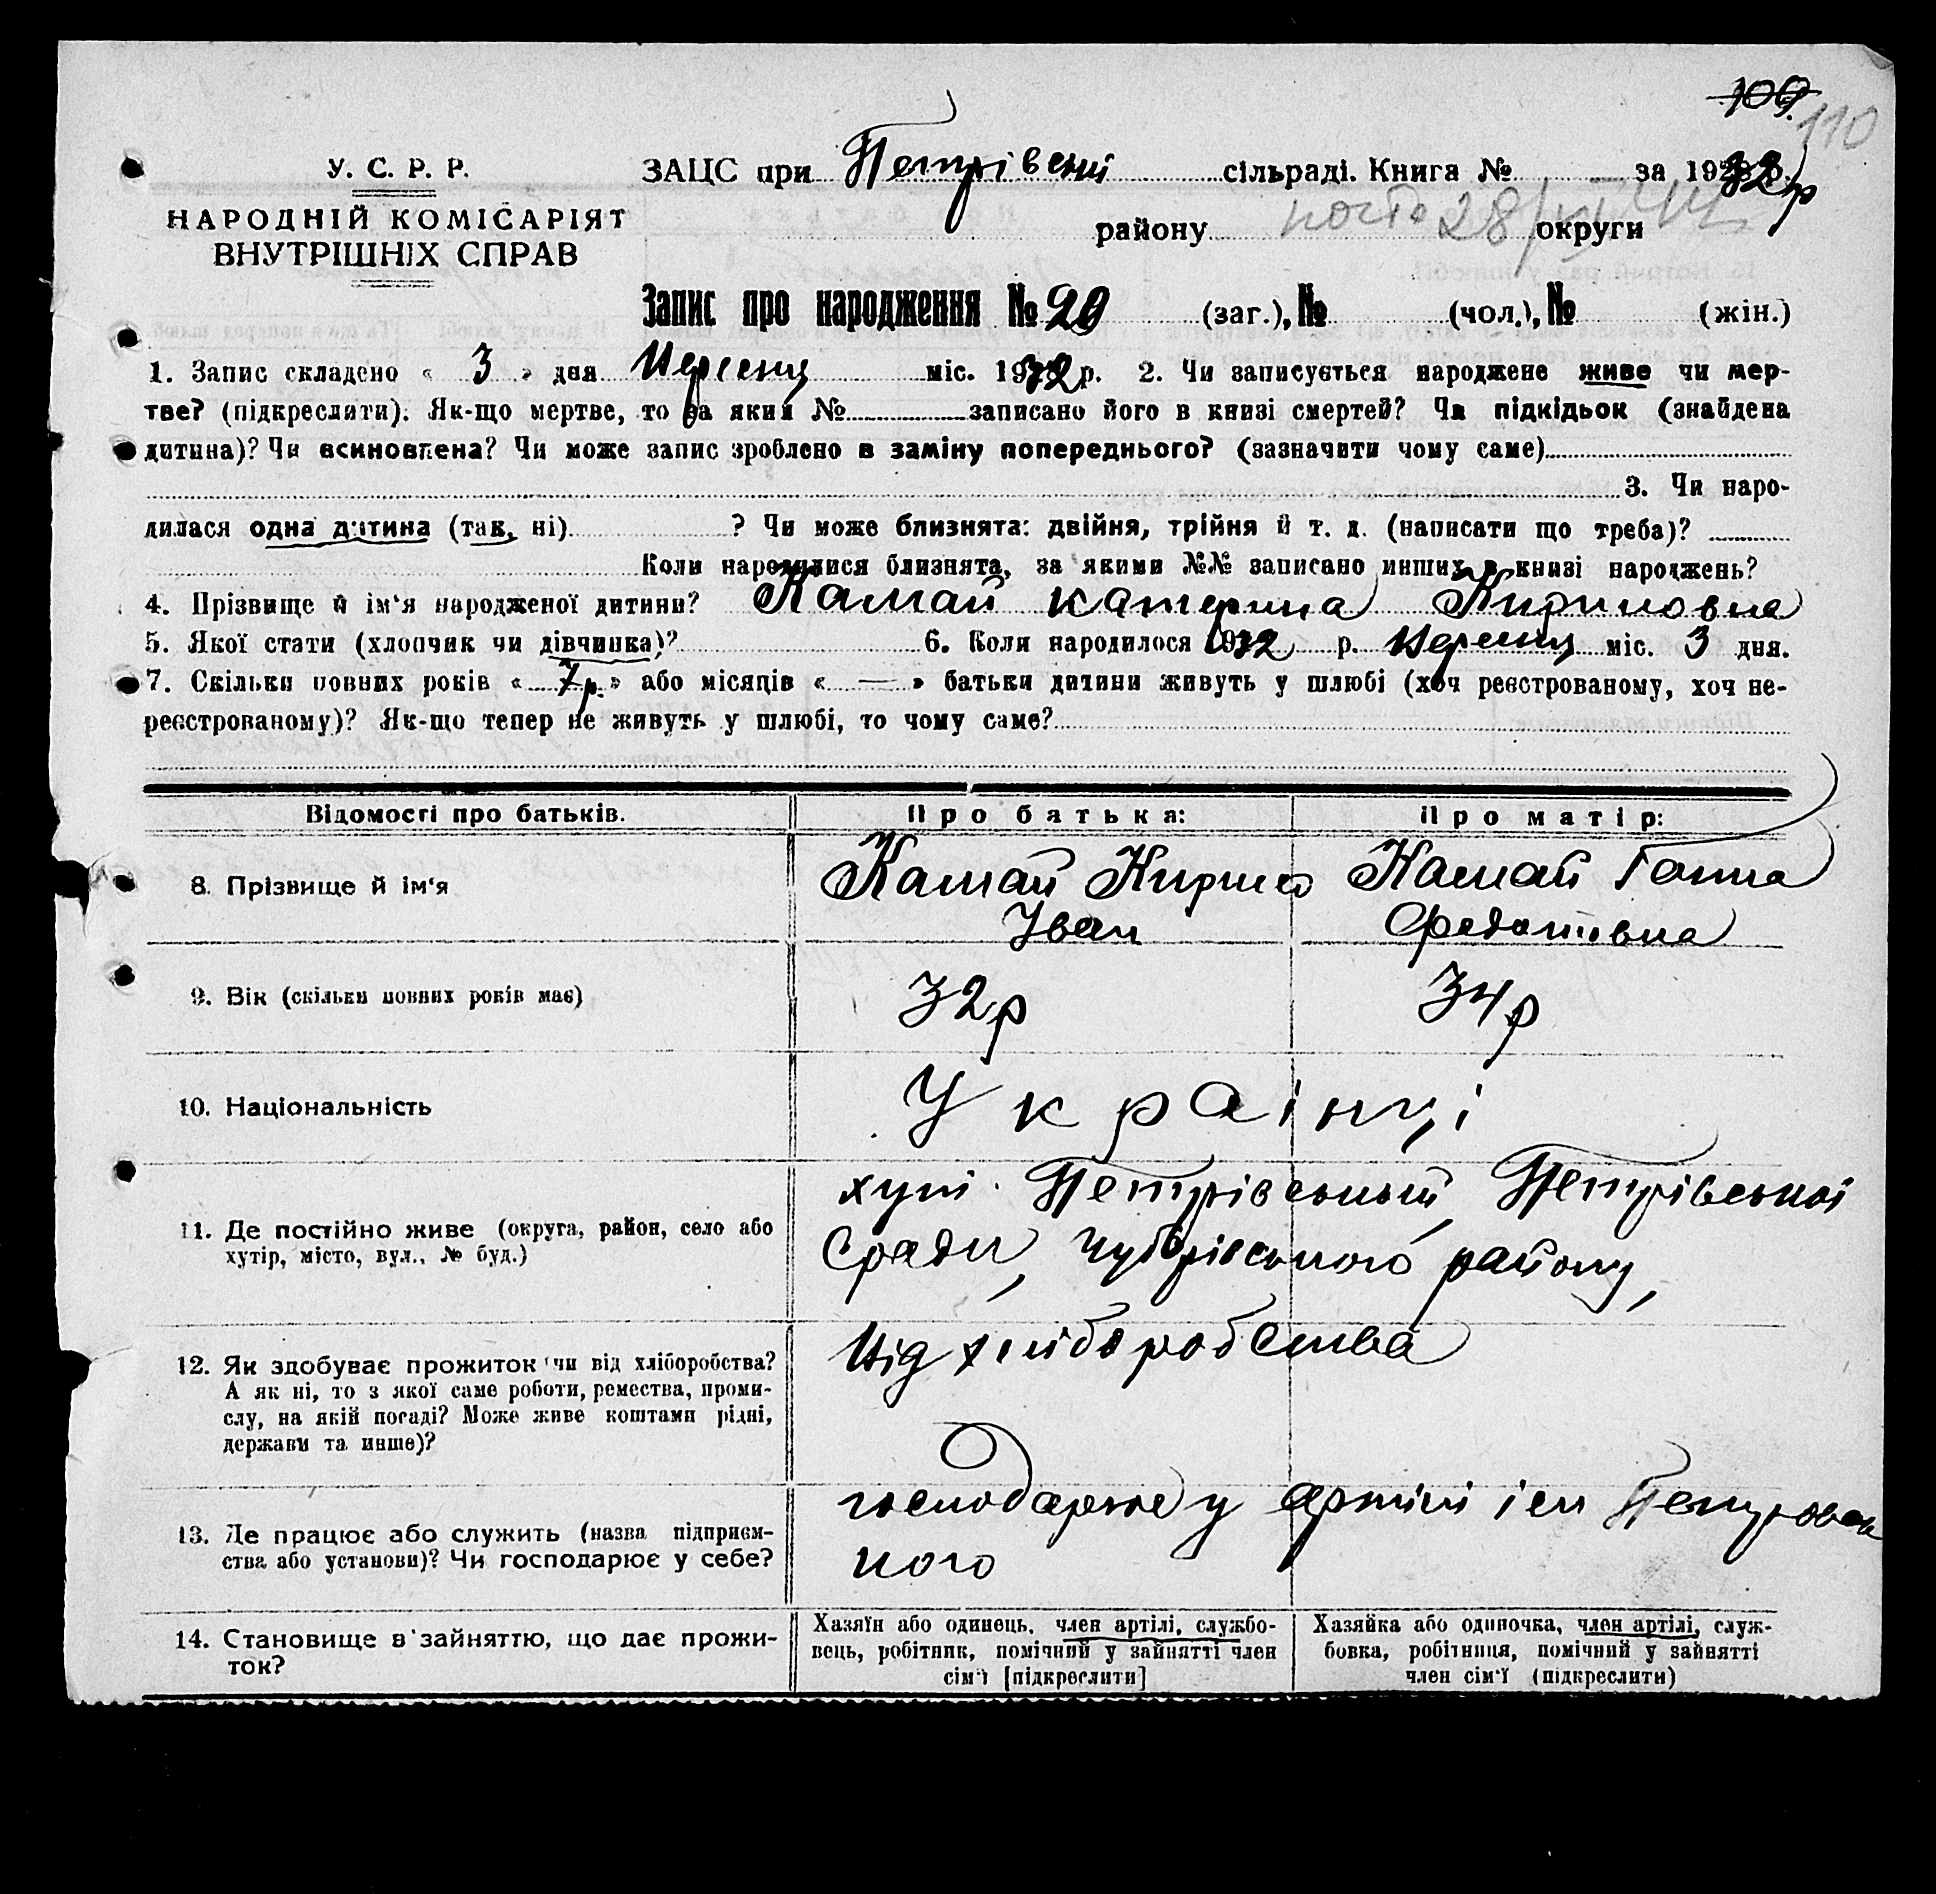 109
110
У. С. Р. Р.
НАРОДНІЙ КОМІСАРІЯТ
ВНУТРІШНІХ СПРАВ
ЗАЦС при Петрівські сільраді. Книга № за 1932 р.
району округи
Запис про народження № 20 (заг.), № (чол.), № (жін.)
1. Запис складено « 3 » дня міс. 1932 р. 2. Чи записується народжене живе чи мер-
тве? (підкреслити). Як-що мертве, то за яким № записано його в книзі смертей? Чи підкідьок (знайдена
дитина)? Чи всиновлена? Чи може запис зроблено в заміну попереднього? (зазначити чому саме)
3. Чи наро-
дилася одна дитина (так, ні) ? Чи може близнята: двійня, трійня й т. д. (написати що треба)?
Коли народилися близнята, за якими №№ записано инших в книзі народжень?
4. Прізвище й ім'я народженої дитини? Камай Катерина Кириловна
5. Якої стати (хлопчик чи дівчинка)? 6. Коли народилося 1932 р. міс. 3 дня.
7. Скільки повних років « 7 р. » або місяців « — » батьки дитини живуть у шлюбі (хоч реєстрованому, хоч не-
реєстрованому)? Як-що тепер не живуть у шлюбі, то чому саме?
Відомості про батьків. Про батька: Про матір:
8. Прізвище й ім'я Камай Кирило Камай Ганна
Іван Федотівна
9. Вік (скільки повних років має) 32 р 34 р
10. Національність Українці
11. Де постійно живе (округа, район, село або
хутір, місто, вул., № буд.)
хут. Петрівський, Петрівської
Сради, Чубарівського району,
12. Як здобуває прожиток чи від хліборобства?
А як ні, то з якої саме роботи, ремества, проми-
слу, на якій посаді? Може живе коштами рідні,
держави та инше)?
Від хліборобства
13. Де працює або служить (назва підприєм-
ства або установи)? Чи господарює у себе?
господарює у артілі ім Петровсь
кого
14. Становище в зайняттю, що дає прожи-
ток?
Хазяїн або одинець, член артілі, службо-
вець, робітник, помічний у зайнятті член
сім'ї [підкреслити]
Хазяйка або одиночка, член артілі, служ-
бовка, робітниця, помічний у зайнятті
член сім'ї (підкреслити)